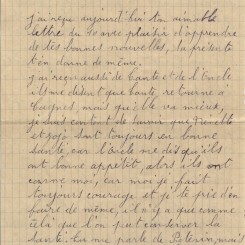 j'ai reçu aujourd'hui ton aimable
lettre du 30 avec plaisir d'apprendre
de tes bonnes nouvelles, la présente
t'en donne de même.
j'ai reçu aussi de tante et de l'Oncle
ils me disent que tante, retourne à
mais qu'elle va mieux,
je suis content de savoir que
et sont toujours en bonne
santé, car l'Oncle me dis qu'ils
ont bonne appétit, alors ils sont
comme moi, car moi je
toujours courage et je te prie d'en
faire de même, il n'y a que comme
cela que l'on peut conserver la
santé. tu me parle de